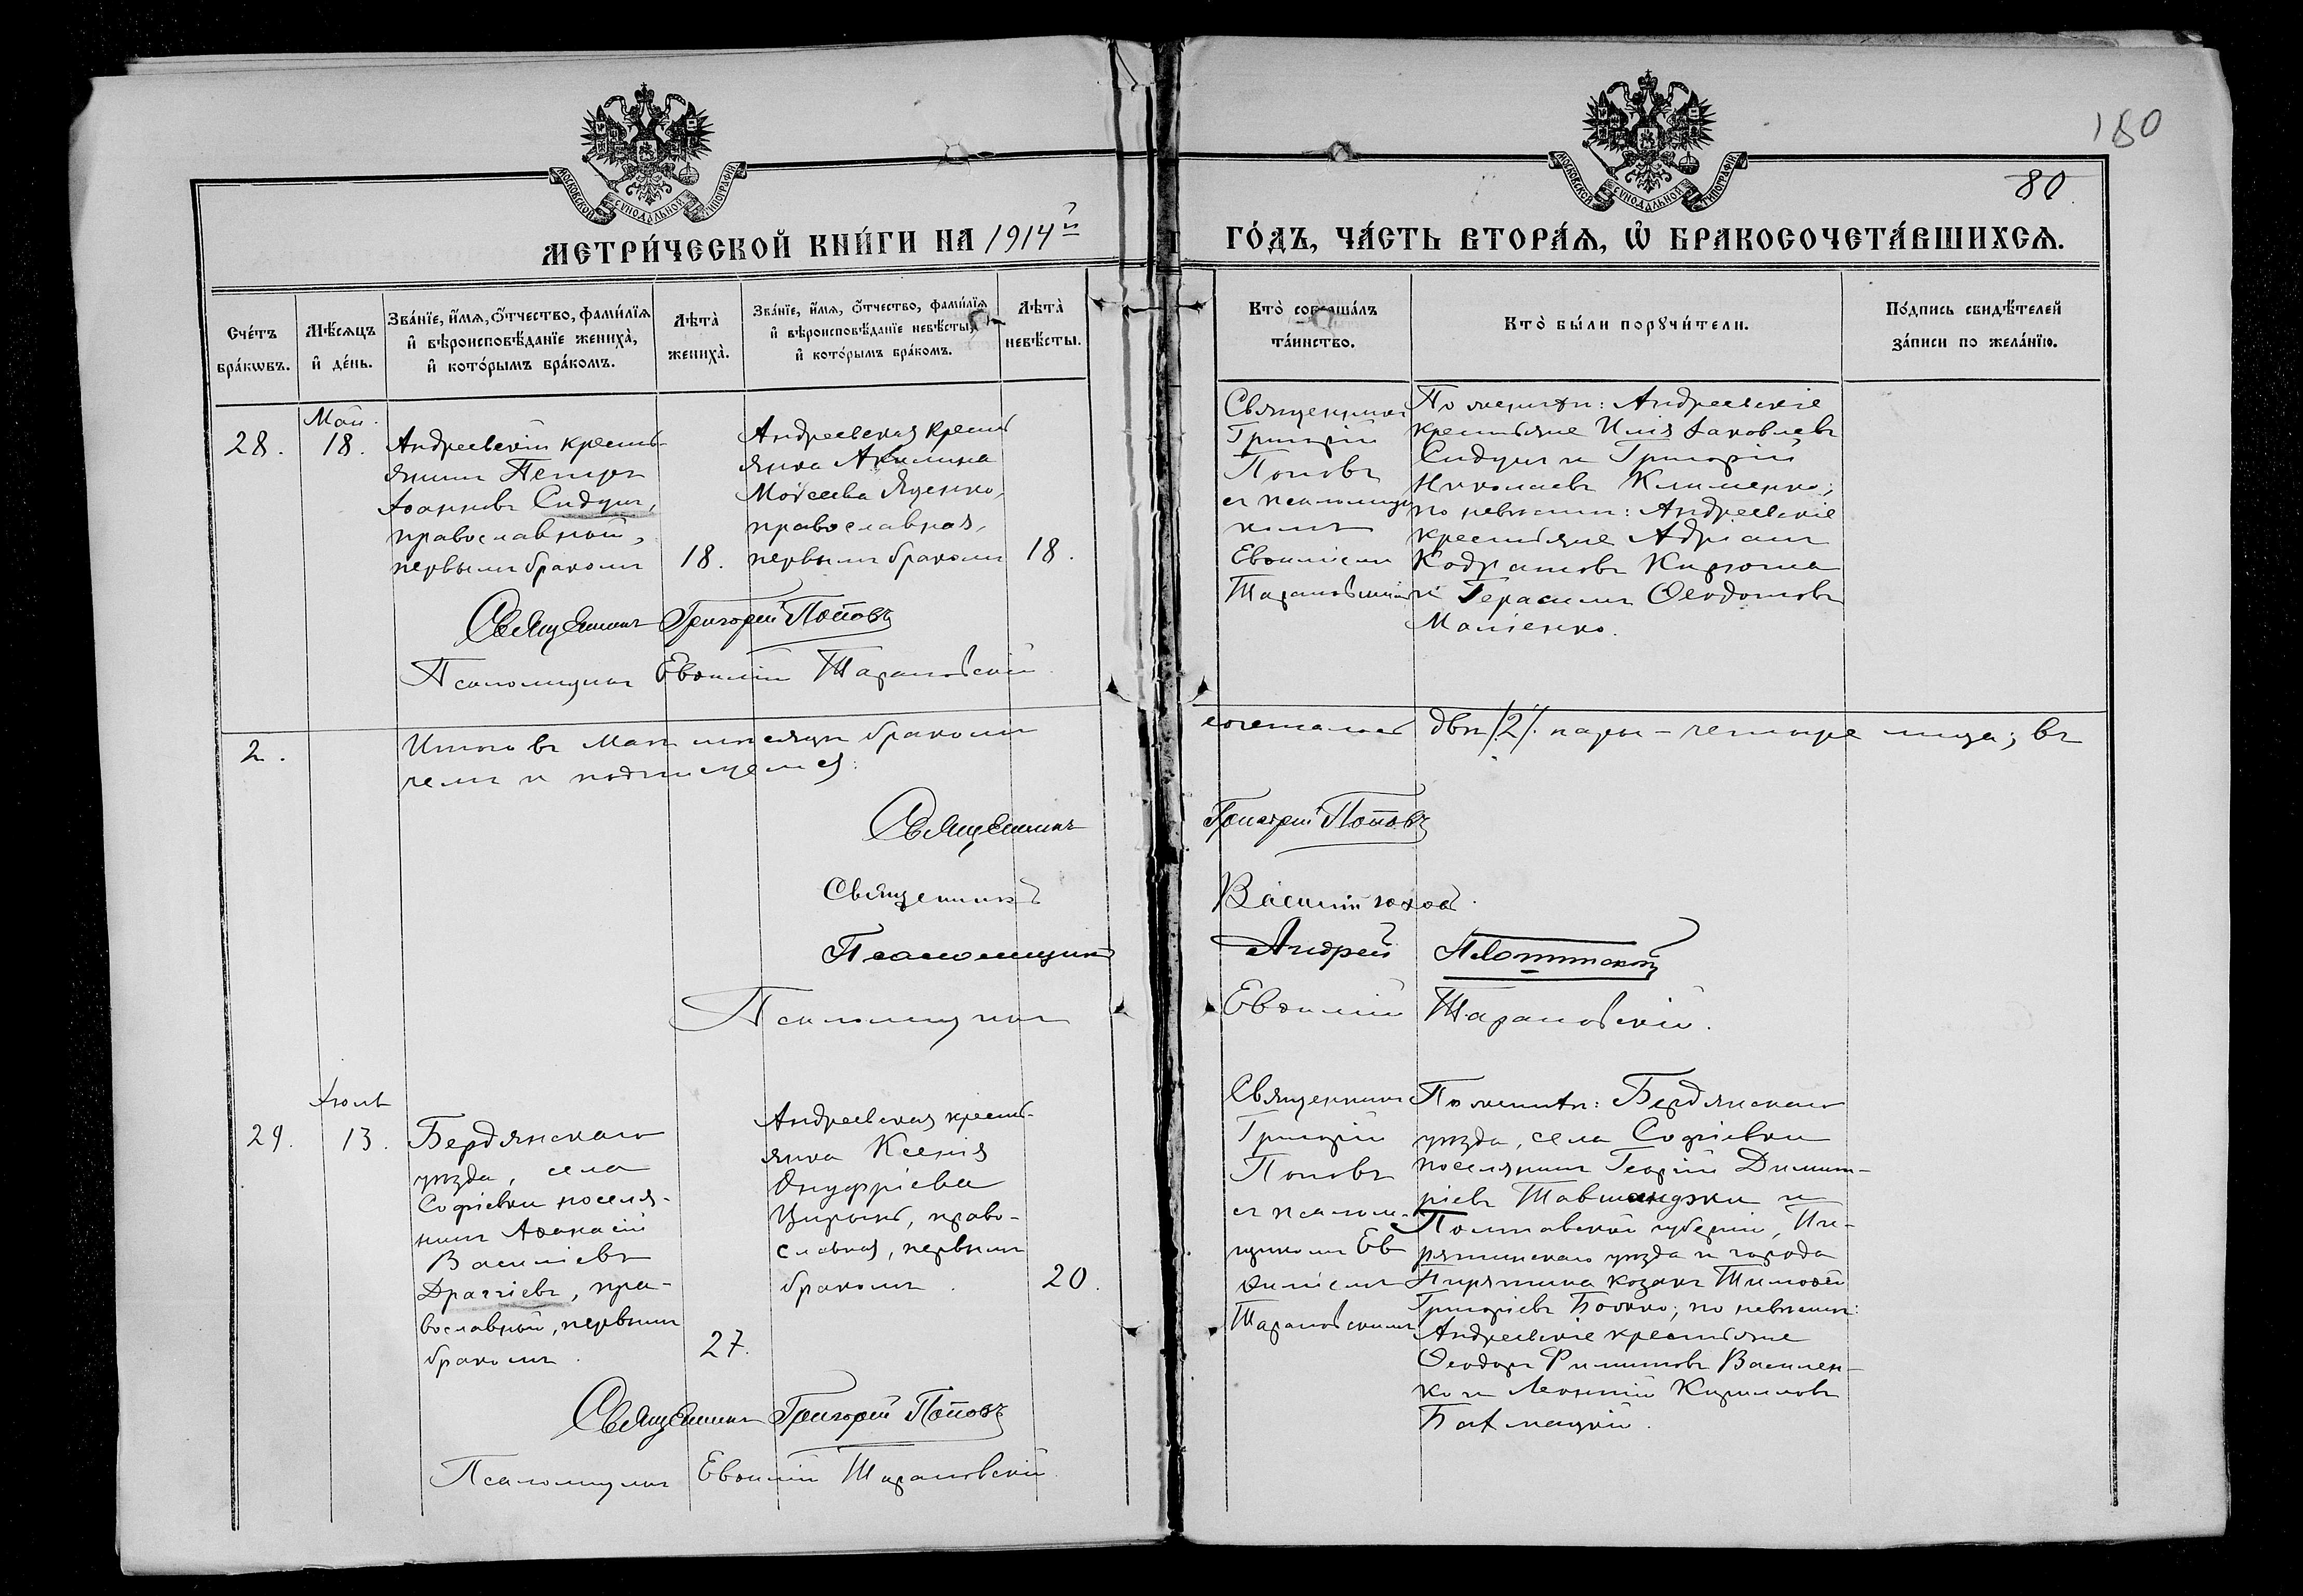 180
80
МОСКОВСКОЙ СѴНОДАЛЬНОЙ ТИПОГРАФІИ
МОСКОВСКОЙ СѴНОДАЛЬНОЙ ТИПОГРАФІИ
МЕТРИ́ЧЕСКОЙ КНИ́ГИ НА 1914й
ГО́ДЪ, ЧА́СТЬ ВТОРА́Ѧ, Ѽ БРАКОСОЧЕТА́ВШИХСѦ.
Сче́тъ бра́кѡвъ.
Мѣ́сѧцъ и҆ де́нь.
Зва́нїе, и҆́мѧ, ѻ҆́тчество, фами́лїѧ и҆ вѣроисповѣ́данїе жениха̀, и҆ кото́рымъ бра́комъ.
Лѣта̀ жениха̀.
Зва́нїе, и҆́мѧ, ѻ҆́тчество, фами́лїѧ и҆ вѣроисповѣ́данїе невѣ́сты, и҆ кото́рымъ бра́комъ.
Лѣта̀ невѣ́сты.
Кто̀ соверша́лъ та́инство.
Кто̀ бы́ли порꙋчи́тели.
По́дпись свидѣ́телей за́писи по жела́нїю.
28.
Май
18.
Андреевскій кресть-
янинъ Петръ
Іоанновъ Сидунъ,
православный,
первымъ бракомъ
18.
Андреевская кресть
янка Акилина
Моѵсеева Яценко,
православная,
первымъ бракомъ
18.
Священникъ
Григорій
Поповъ
съ псаломщи
комъ
Евѳиміемъ
Тарановскимъ
По женихѣ: Андреевскіе
крестьяне Илія Іаковлевъ
Сидунъ и Григорій
Николаевъ Клименко;
по невѣстѣ: Андреевскіе
крестьяне Адріанъ
Кодратовъ
и Герасимъ Ѳеодотовъ
Священникъ Григорій Поповъ
Псаломщикъ Евѳимій Тарановскій
2.
Итого въ Маѣ мѣсяцѣ бракомъ
сочеталось двѣ /2/ пары - четыре лица; въ
чемъ и подпишемся:
Священникъ Григорій Поповъ
Священникъ Василій
Псаломщикъ Андрей
Псаломщикъ Евѳимій Тарановскій.
29.
Іюль
13.
Бердянскаго
уѣзда, села
Софіевки поселя-
нинъ Аѳанасій
Василіевъ
Драгіевъ, пра-
вославный, первымъ
бракомъ.
27.
Андреевская кресть-
янка Ксенія
Онуфріева
Цирынь, право-
славная, первымъ
бракомъ.
20.
Священникъ
Григорій
Поповъ
съ псалом-
щикомъ Ев
ѳиміемъ
Тарановскимъ
По женихѣ: Бердянскаго
уѣзда, села Софіевки
поселянинъ Георгій Димит-
ріевъ Тавшанджи и
Полтавской губерніи, Пи-
рятинскаго уѣзда и города
Пирятина козакъ Тимоѳей
Григоріевъ Бойко; по невѣстѣ:
Андреевскіе крестьяне
Ѳеодоръ Филиповъ Василен-
ко и Леонтій Кирилловъ
Бахмацкій.
Священникъ Григорій Поповъ
Псаломщикъ Евѳимій Тарановскій.